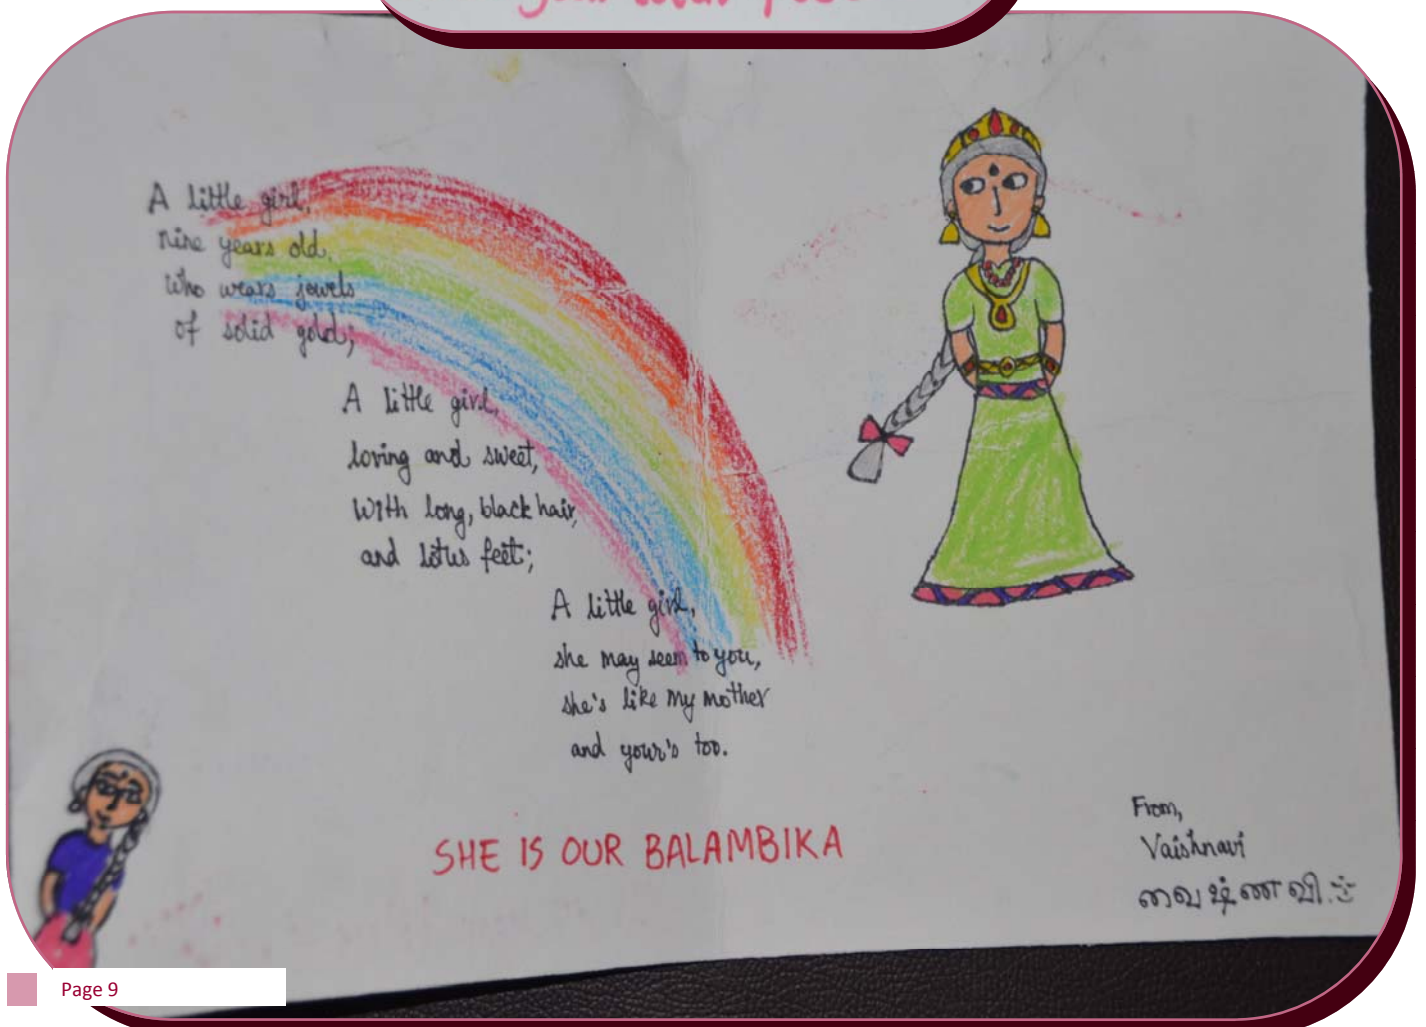 A little girl,
nine years old,
Who wears jewels
of solid gold;
A little girl,
loving and sweet,
With long, black hair,
and lotus feet;
A little girl,
she may seem to you,
she's like my mother
and your's too.
SHE IS OUR BALAMBIKA
From,
Vaishnavi
வைஷ்ணவி.
Page 9